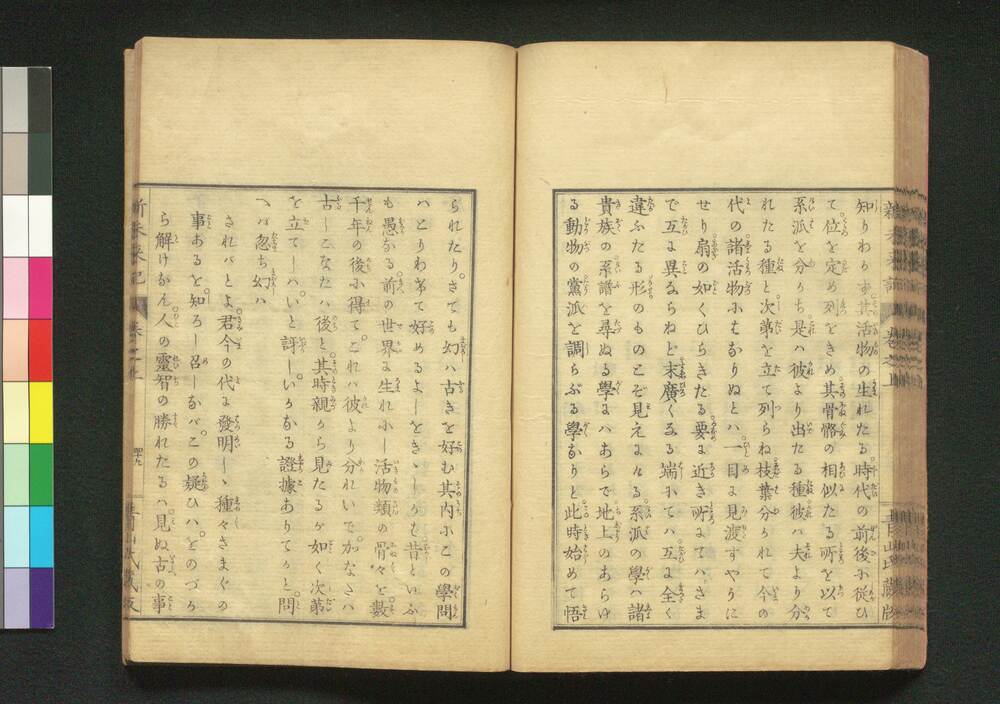 新未来記 巻之上 青山氏藏版
知りわかず其活物の生れたる時代の前後に従ひ
て位を定め列をきめ其骨骼の相似たる所を以て
系派を分かち是ハ彼より出たる種彼ハ夫より分
れたる種と次第を立て列らね枝葉分かれて今の
代の諸活物にはなりぬとハ一目に見渡すやうに
せり扇の如くひらきたる要に近き所にてハさま
で互に異ならねど末廣くなる端にてハ互に全く
違ふたる形のものこそ見えたる系派の學ハ諸
貴族の系譜を尋ぬる學にハあらで地上のあらゆ
る動物の黨派を調らぶる學なりと此時始めて悟
られたりさても幻ハ古きを好む其内にこの學問
ハとりわきて好めるよしをきゝしかも昔といふ
も愚なる前の世界に生れにし活物類の骨々を数
千年の後に得てこれハ彼より分れいでかなたハ
古しこなたハ後と其時親から見たるが如く次第
を立てしハいと訝しいかなる證據ありてかと問
へバ忽ち幻ハ
されバとよ君今の代に發明しゝ種々さまざまの
事あるを知ろし召しなバこの疑ひハをのづか
ら解けなん人の靈智の勝れたるハ見ぬ古の事
新未来記 巻之上 青山氏藏版